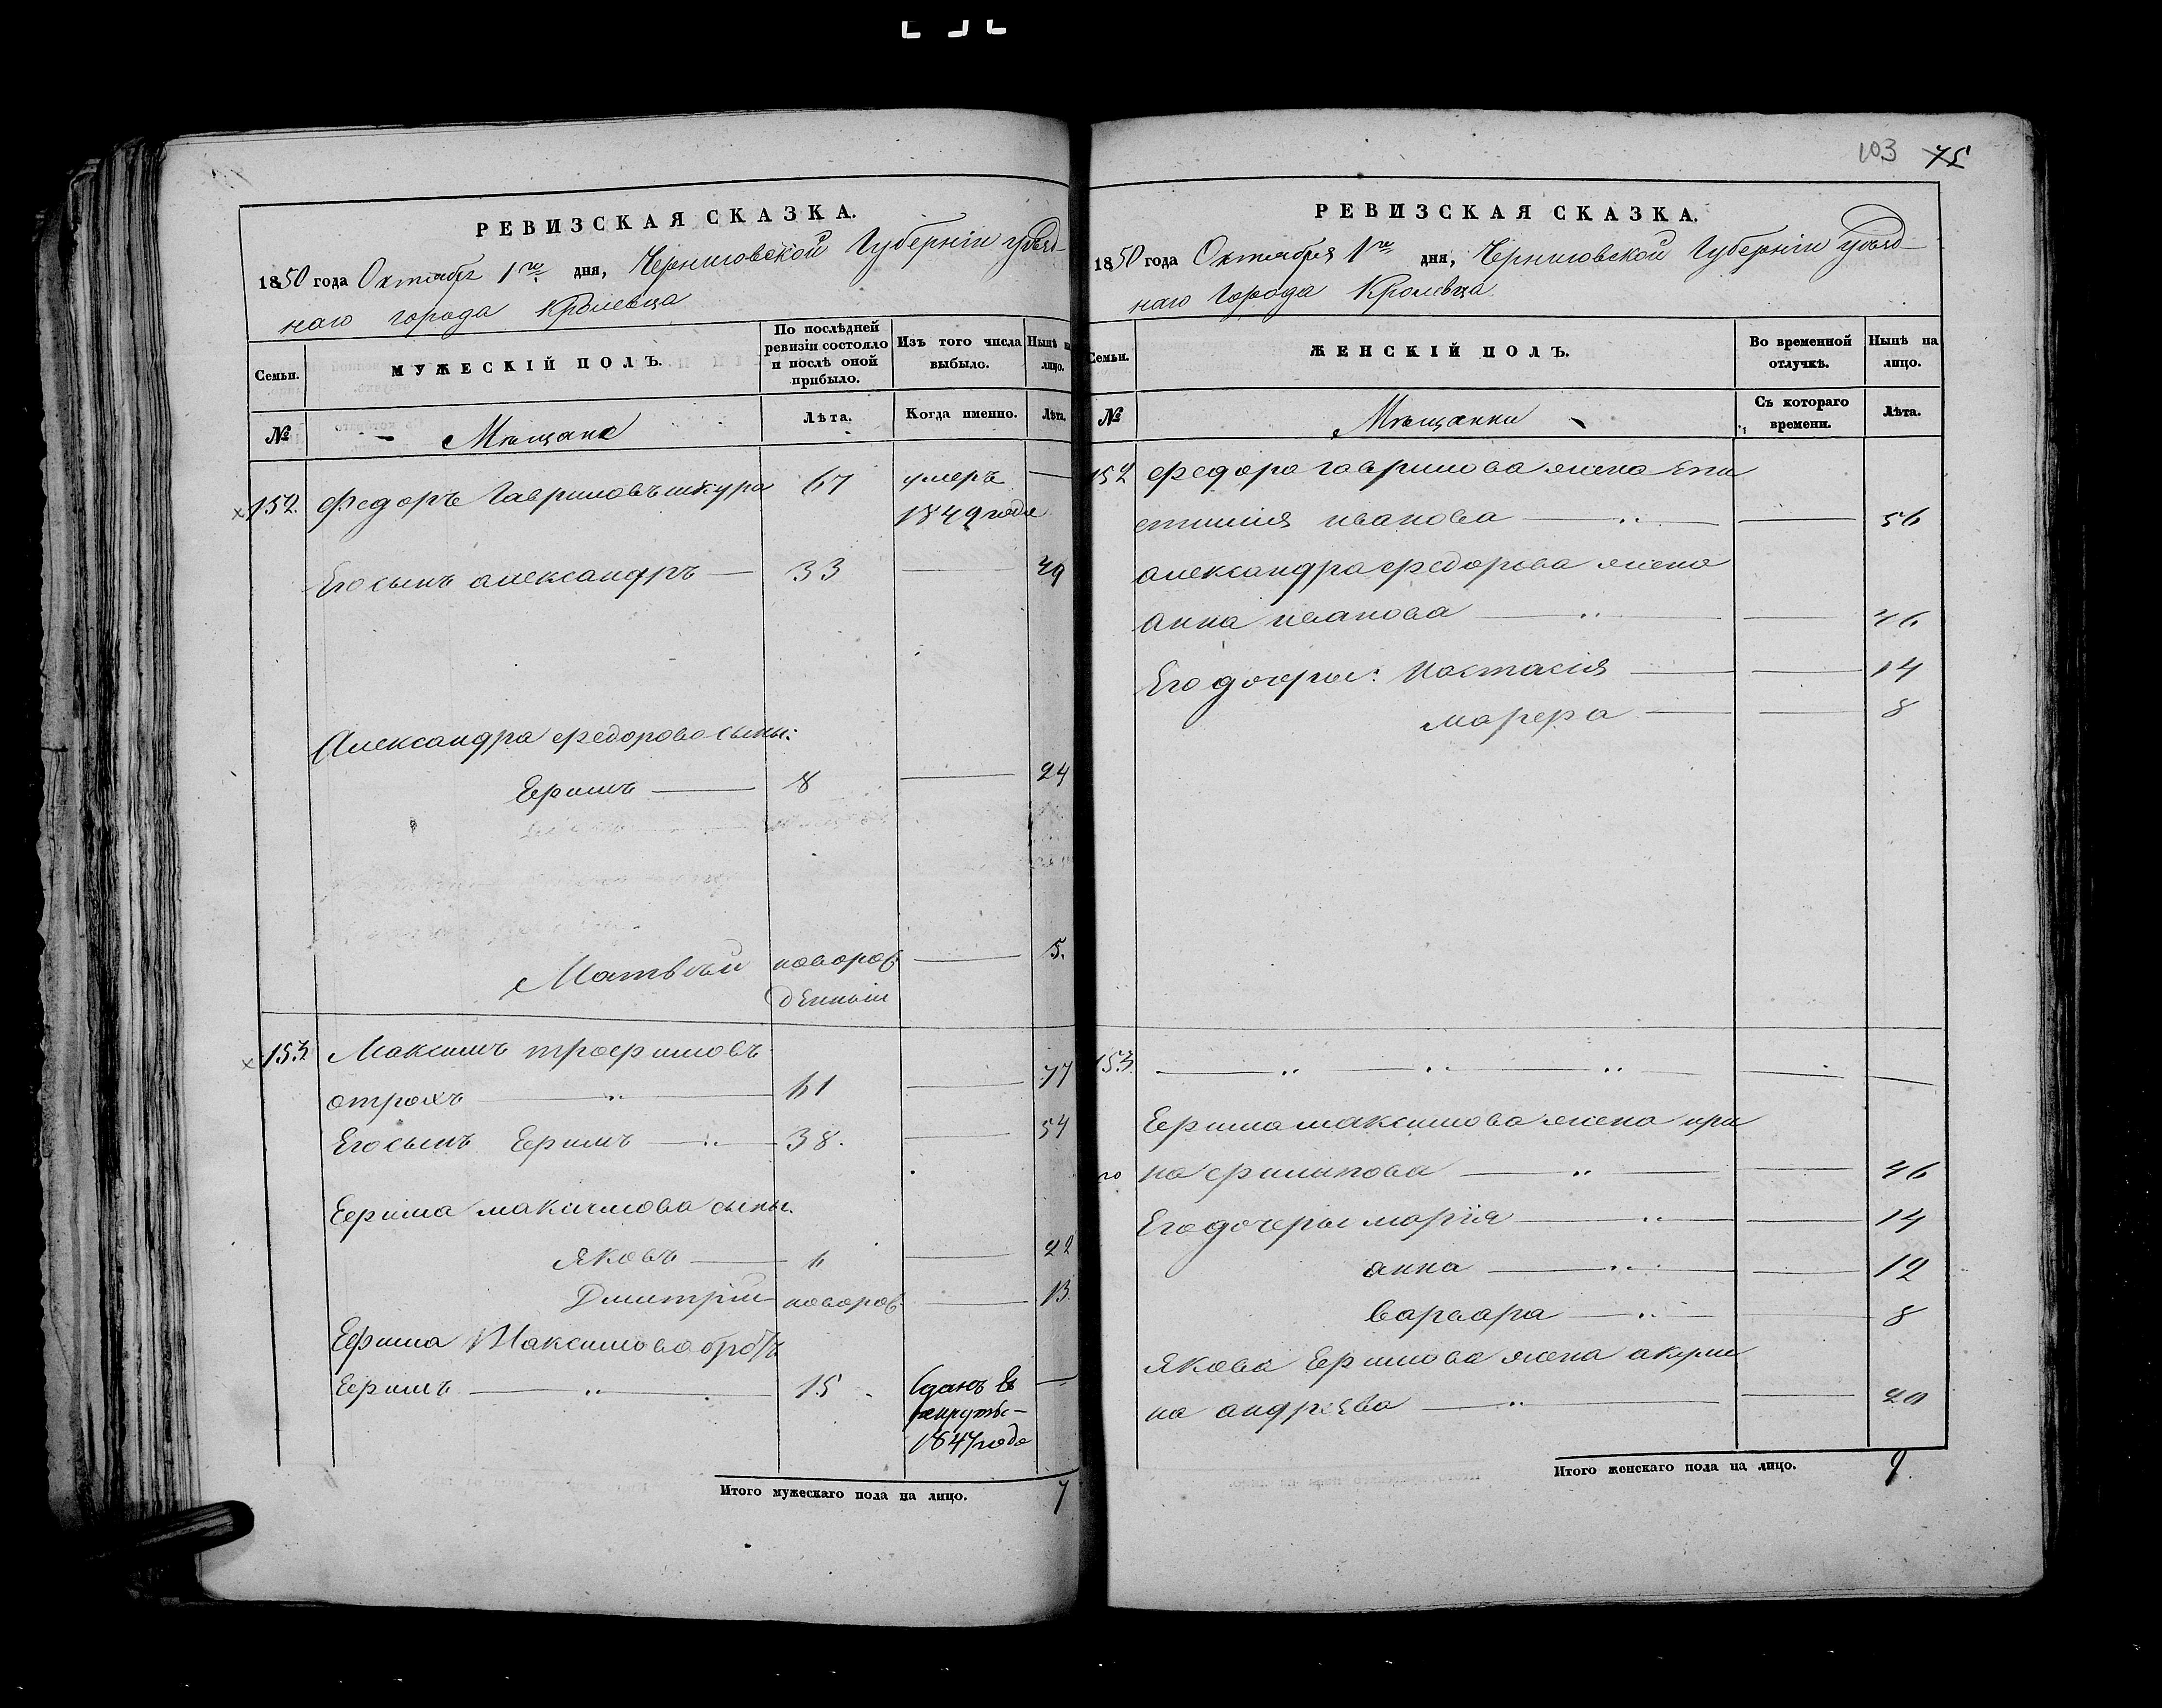 РЕВИЗСКАЯ СКАЗКА.
1850 года Октября 1го дня, Черниговской Губернiи уѣзд-
наго города Кролевца
Семьи.
МУЖЕСКIЙ ПОЛЪ.
По послѣдней ревизiи состояло и послѣ оной прибыло.
Изъ того числа выбыло.
Нынѣ на лицо.
№
Мѣщане
Лѣта.
Когда именно.
Лѣта.
152. Федоръ Гавриловъ шкура 67 умеръ —
1849 года
Его сынъ александръ — 33 — 49
Александра федорова сыны:
Ефимъ — 8 — 24
Матвѣй новорож — 5.
денный
153 Максимъ трофимовъ
отрохъ — 61 — 77
Его сынъ Ефимъ — 38. — 54
Ефима максимова сыны.
Яковъ — 6 — 22
Дмитрiй новорож. — 13.
Ефима Максимова братъ
Ефимъ — 15 Сданъ въ —
рекруты-
1847 года
Итого мужескаго пола на лицо. 7
103 75
РЕВИЗСКАЯ СКАЗКА.
1850 года Октября 1го дня, Черниговской Губернiи уѣзд-
наго города Кролевца
Семьи.
ЖЕНСКIЙ ПОЛЪ.
Во временной отлучкѣ.
Нынѣ на лицо.
№
Мѣщанки
Съ котораго времени.
Лѣта.
152 Федора гаврилова жена Епи
стимiя иванова — — 56
александра федорова жена
анна иванова — — 46
Его дочери: Настасiя — — 14
марфа — — 8
153. — — —
Ефима максимова жена ири
на филипова — — 46
Его дочери марiя — — 14
анна — — 12
варвара — — 8
Якова Ефимова жена акули
на андрѣева — — 20
Итого женскаго пола на лицо. 9.